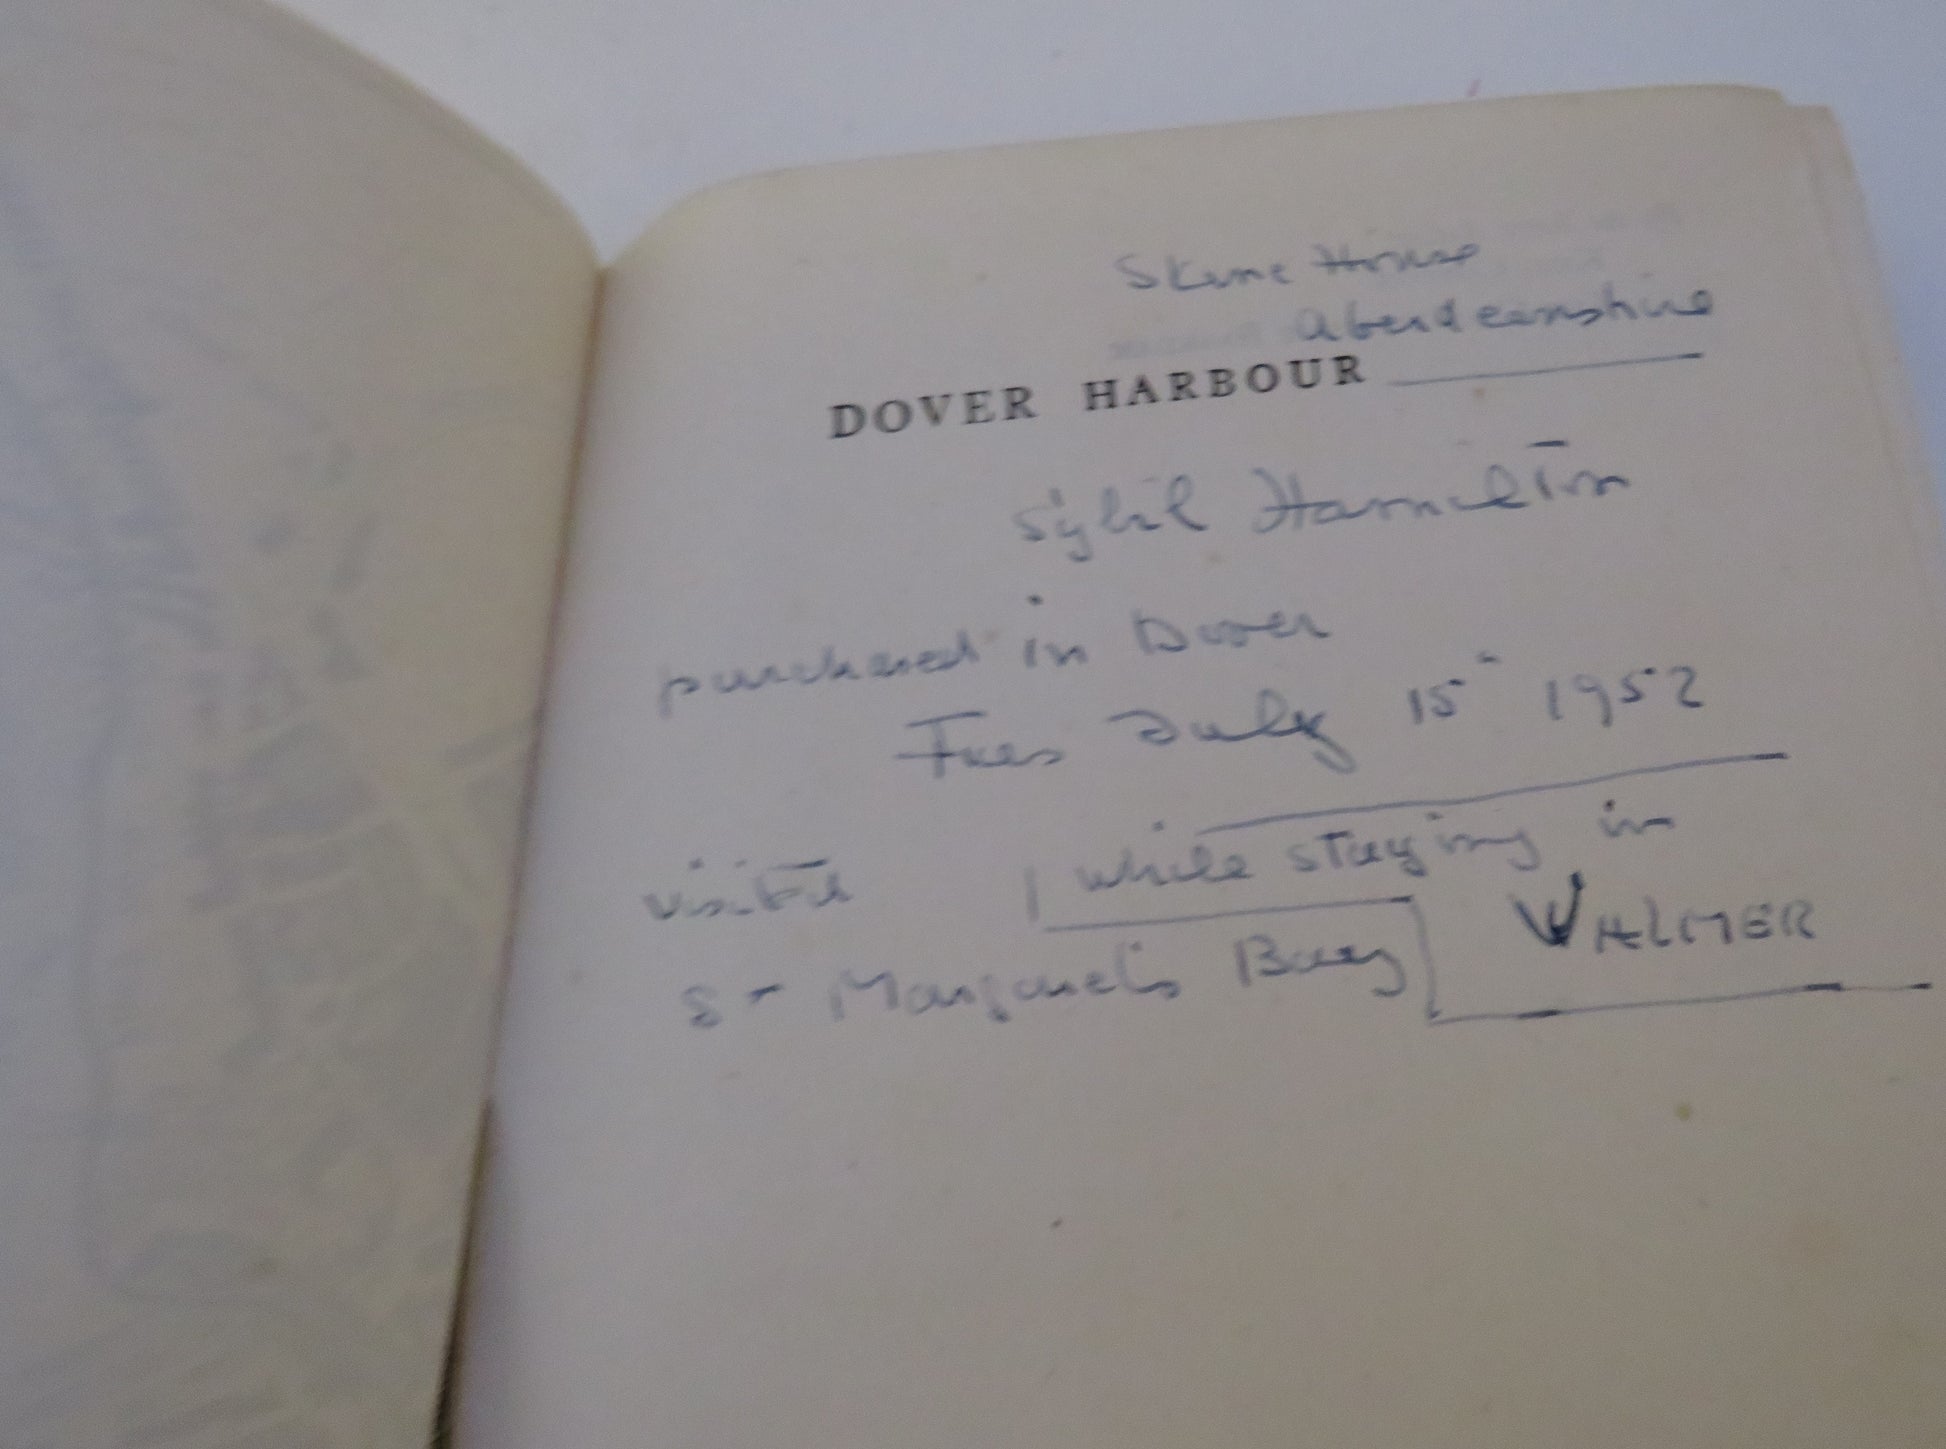 Skene House
Aberdeenshire
DOVER HARBOUR
Sybil Hamilton
purchased in Dover
Tues July 15 1952
visited
while staying in
WALMER
St Margaret's Bay